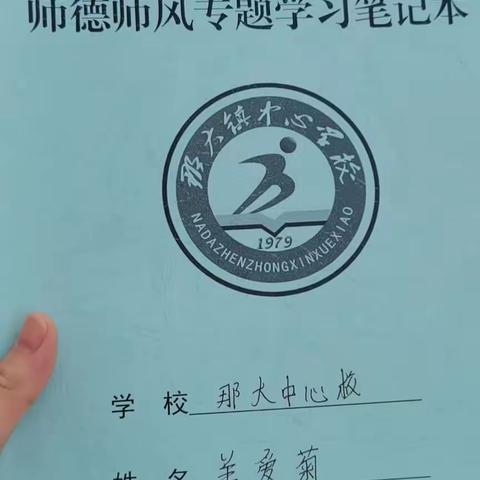 师德师风专题学习笔记本
那大镇中心学校
1979
NADAZHENZHONGXINXUEXIAO
学 校 那大中心校
姓 名 羊爱菊